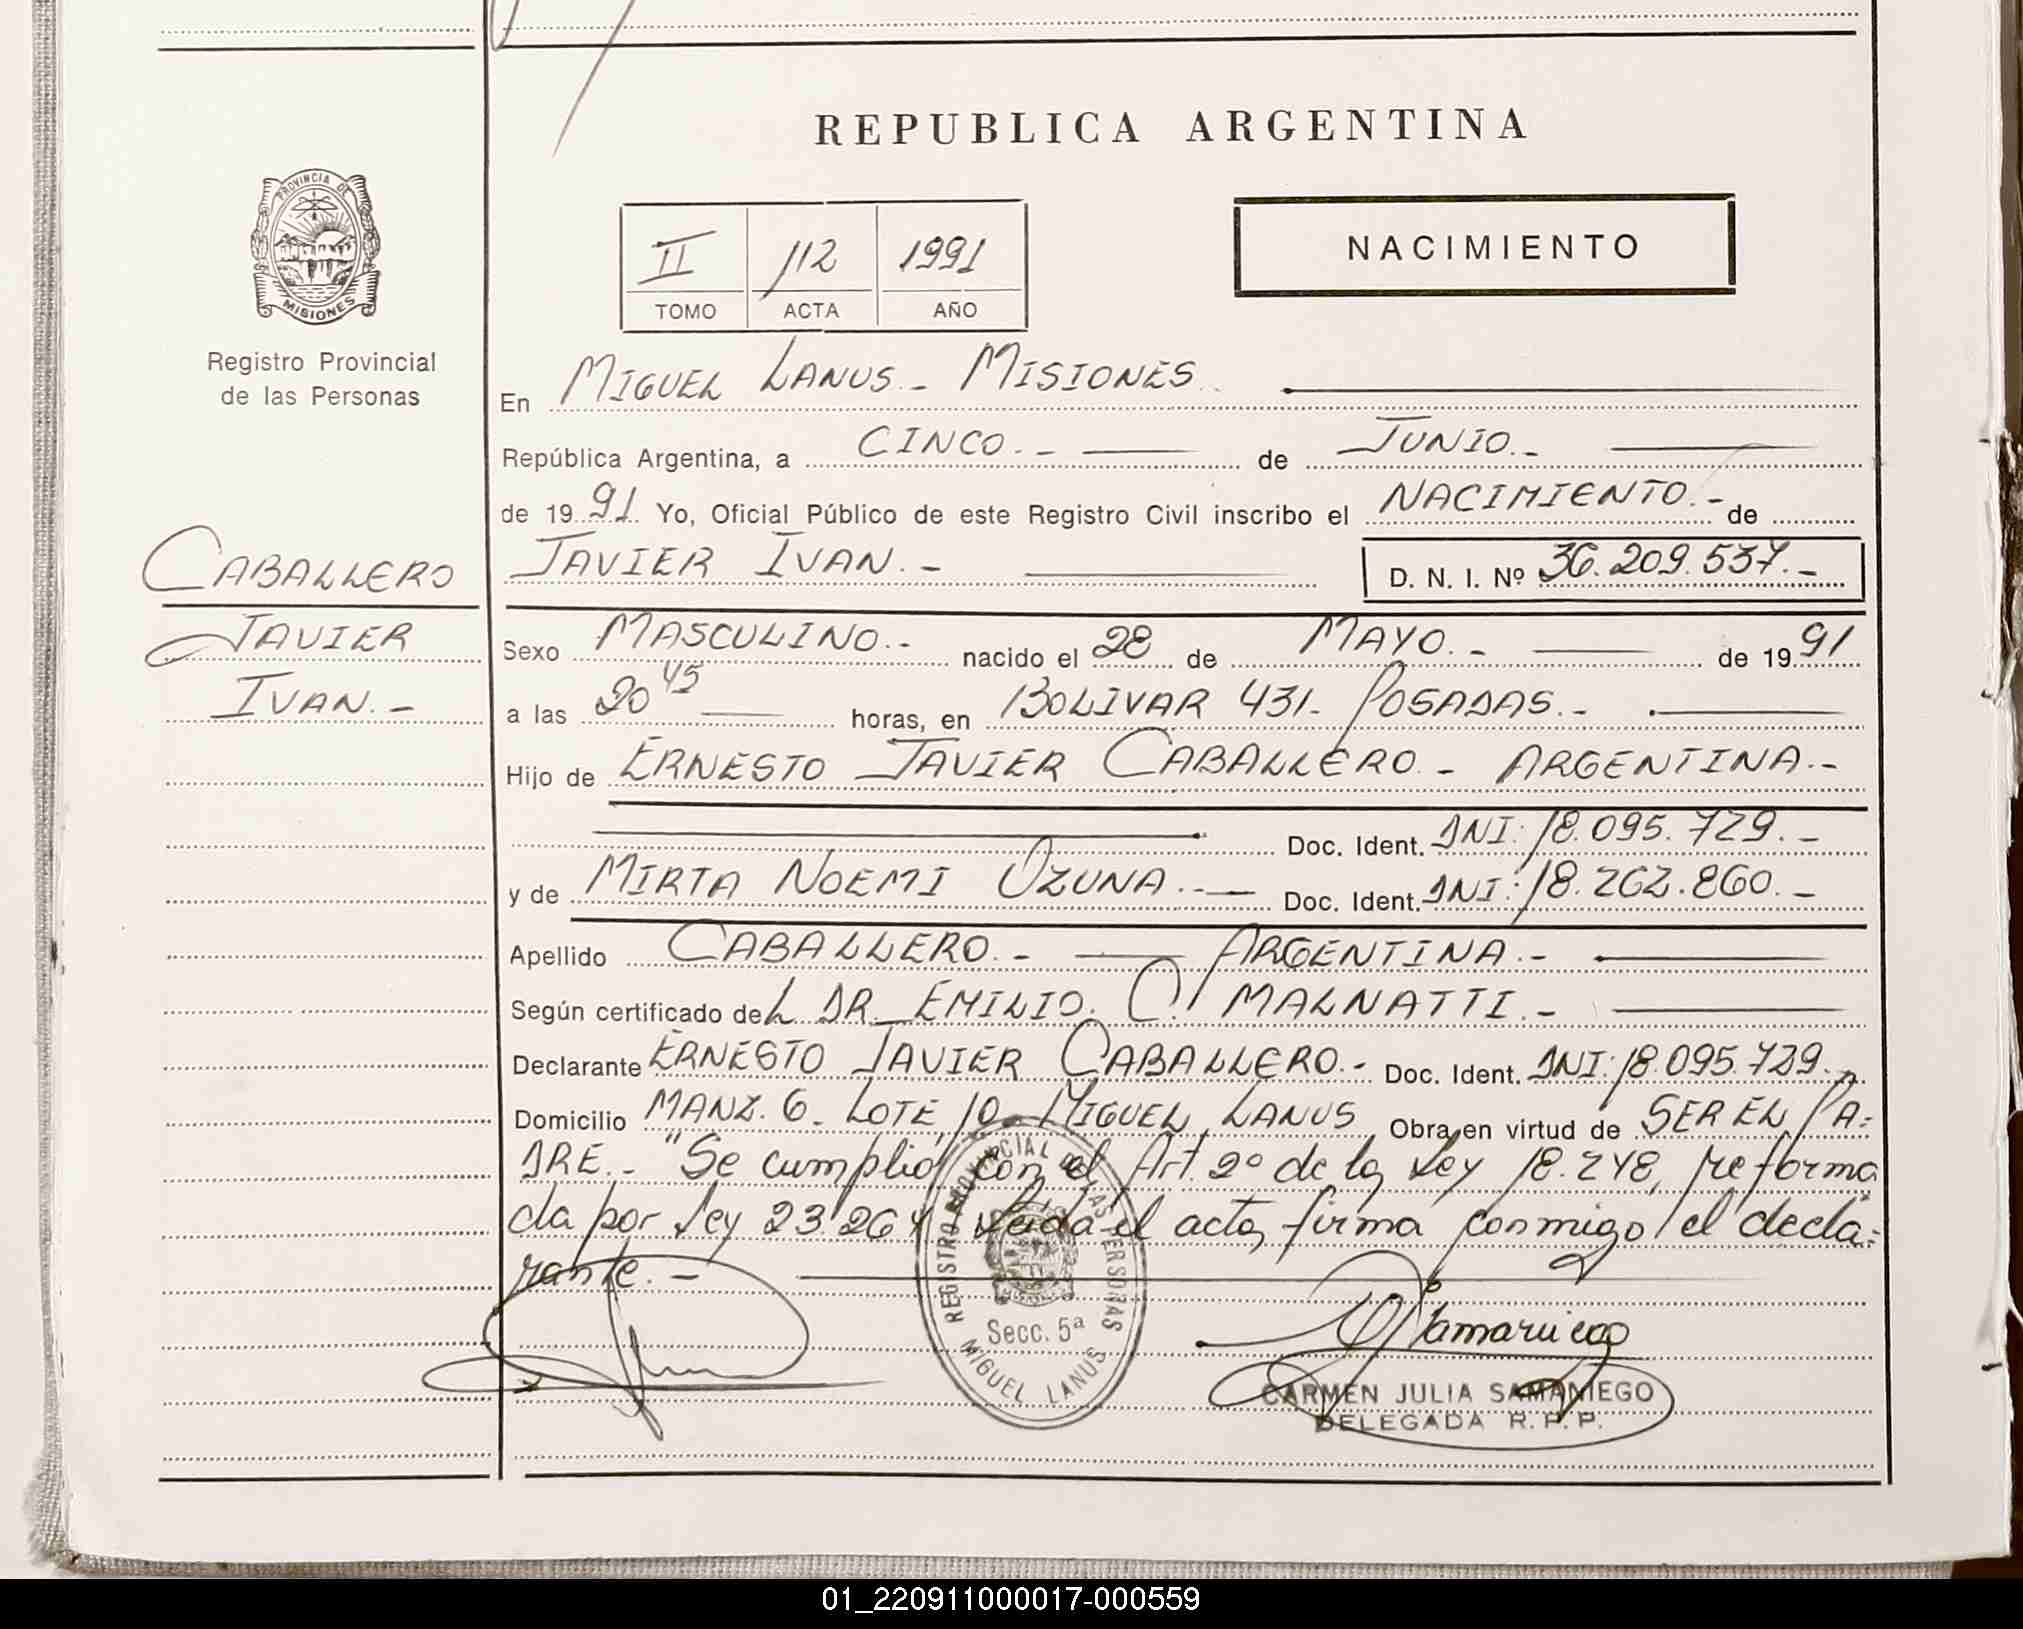 REPUBLICA ARGENTINA
PROVINCIA DE MISIONES
Registro Provincial
de las Personas
II 112 1991
TOMO ACTA AÑO
NACIMIENTO
En MIGUEL LANUS.- MISIONES.
República Argentina, a CINCO.- de JUNIO.-
de 1991 Yo, Oficial Público de este Registro Civil inscribo el NACIMIENTO.- de
CABALLERO
JAVIER
IVAN.-
JAVIER IVAN.- D. N. I. Nº 36.209.537.-
Sexo MASCULINO.- nacido el 28 de MAYO.- de 1991
a las 20 45 horas, en BOLIVAR 431- POSADAS.-
Hijo de ERNESTO JAVIER CABALLERO.- ARGENTINA.-
Doc. Ident. DNI: 18.095.729.-
y de MIRTA NOEMI OZUNA.- Doc. Ident. DNI: 18.262.860.-
Apellido CABALLERO.- ARGENTINA.-
Según certificado de L DR. EMILIO. O. MALNATTI.-
Declarante ERNESTO JAVIER CABALLERO.- Doc. Ident. DNI: 18.095.729.-
Domicilio MANZ. 6- LOTE 10- MIGUEL LANUS Obra en virtud de SER EL PA=
DRE.- "Se cumplió con el Art. 2º de la Ley 18.248, reforma
da por Ley 23.264" Leída el acta, firma conmigo el decla=
rante.-
REGISTRO PROVINCIAL DE LAS PERSONAS
Secc. 5ª
MIGUEL LANUS
Samaniego
CARMEN JULIA SAMANIEGO
DELEGADA R. P. P.
01_220911000017-000559